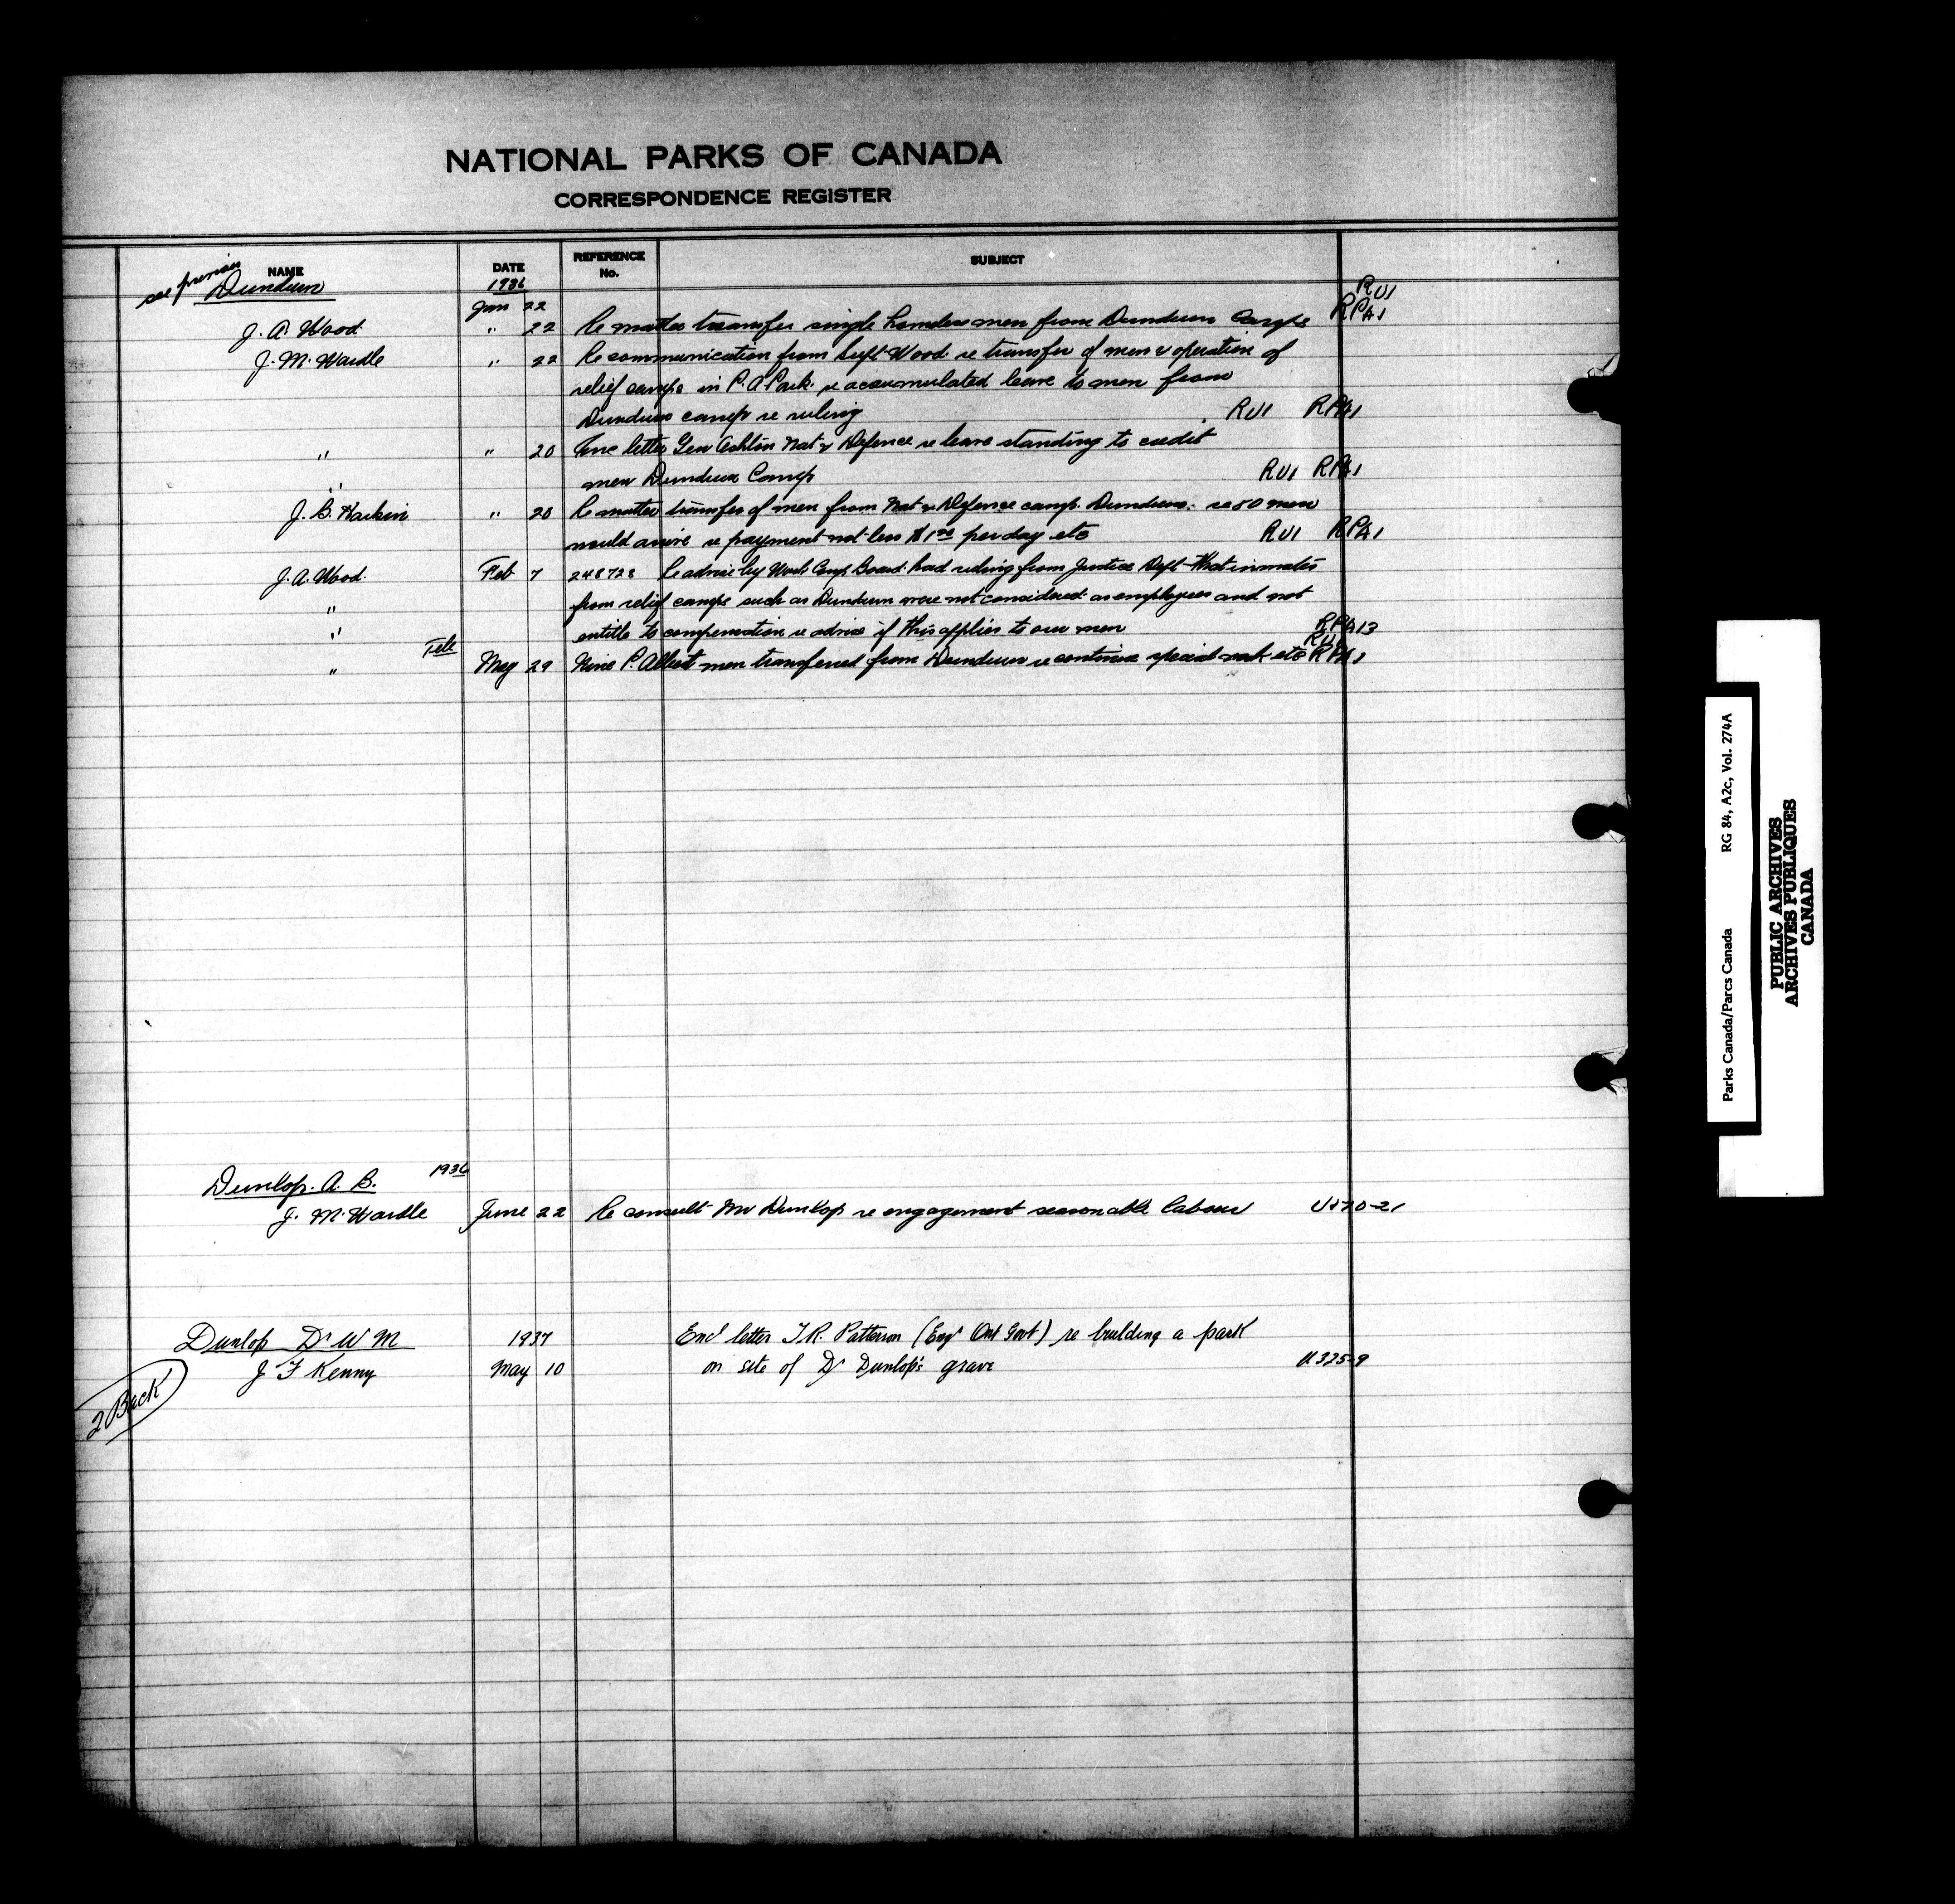 NATIONAL PARKS OF CANADA
CORRESPONDENCE REGISTER
NAME DATE REFERENCE No. SUBJECT
see previous Dundurn 1936
Jan 22 RU1
J. A. Wood " 22 Re matter transfer single homeless men from Dundurn Camps RPA1
J. M. Wardle " 22 Re communication from Supt Wood re transfer of men & operation of
relief camps in P. A. Park re accumulated leave to men from
Dundurn camp re ruling RU1 RPA1
" " 20 Enc letter Gen Ashton Nat Defence re leave standing to credit
" men Dundurn Camp RU1 RPA1
J. B. Harkin " 20 Re matter transfer of men from Nat Defence camp Dundurn re 50 men
would arrive re payment not less $1.00 per day etc RU1 RPA1
J. A. Wood. Feb 7 248728 Re advise by Work Comp Board had ruling from Justice Dept that inmates
" from relief camps such as Dundurn were not considered as employees and not
" entitle to compensation re advise if this applies to our men RPA13
RU1
" Tele May 29 Nine P. Albert men transferred from Dundurn re continue special work etc RPA1
Dunlop. A. B. 1936
J. M. Wardle June 22 Re consult Mr Dunlop re engagement seasonable labour U170-21
Dunlop Dr W M 1937 Encl letter T R. Patterson (Engr Ont Govt) re building a park
J F Kenny May 10 on site of Dr Dunlop's grave U325-9
2 Back
Parks Canada/Parcs Canada RG 84, A2c, Vol. 274A
PUBLIC ARCHIVES
ARCHIVES PUBLIQUES
CANADA